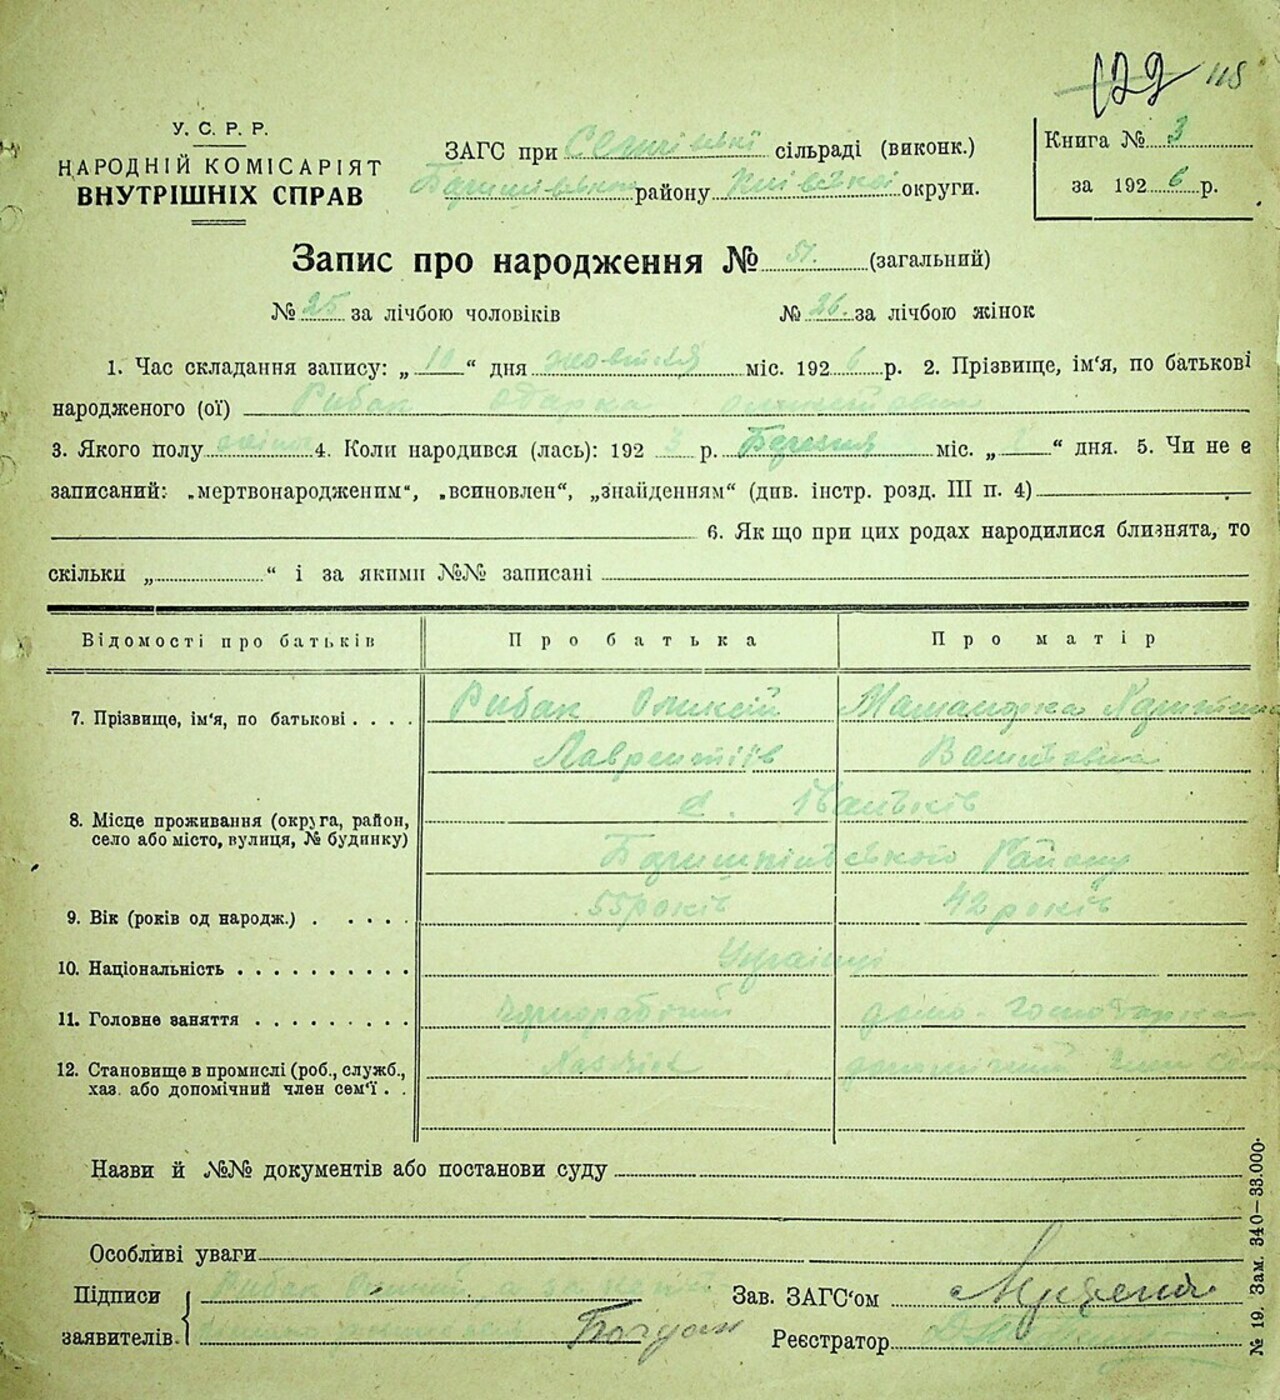 122 118
У. С. Р. Р.
НАРОДНІЙ КОМІСАРІЯТ
ВНУТРІШНІХ СПРАВ
ЗАГС при сільраді (виконк.)
району Київської округи.
Книга № 3
за 1926 р.
Запис про народження № 51. (загальний)
№ 25 за лічбою чоловіків № 26. за лічбою жінок
1. Час складання запису: „10“ дня жовтня міс. 1926 р. 2. Прізвище, ім‘я, по батькові
народженого (ої) Рибак Одарка
3. Якого полу 4. Коли народився (лась): 1923 р. Березня міс. „ “ дня. 5. Чи не є
записаний: „мертвонародженим“, „всиновлен“, „знайденням“ (див. інстр. розд. III п. 4)
6. Як що при цих родах народилися близнята, то
скільки „ “ і за якими №№ записані
Відомості про батьків Про батька Про матір
7. Прізвище, ім‘я, по батькові . . . . Рибак Оликсій
Лаврентіїв
8. Місце проживання (округа, район, село або місто, вулиця, № будинку) с. Іваньків
Району
9. Вік (років од народж.) . . . . . 55 років 42 років
10. Національність . . . . . . . . . . Українці
11. Головне заняття . . . . . . . . . Чорноробочий домо-господарка
12. Становище в промислі (роб., служб., хаз. або допомічний член сем‘ї . .
Назви й №№ документів або постанови суду
Особливі уваги
Підписи заявителів. Рибак
Богдан
Зав. ЗАГС‘ом
Реєстратор
№ 19. Зам. 340—33.000.